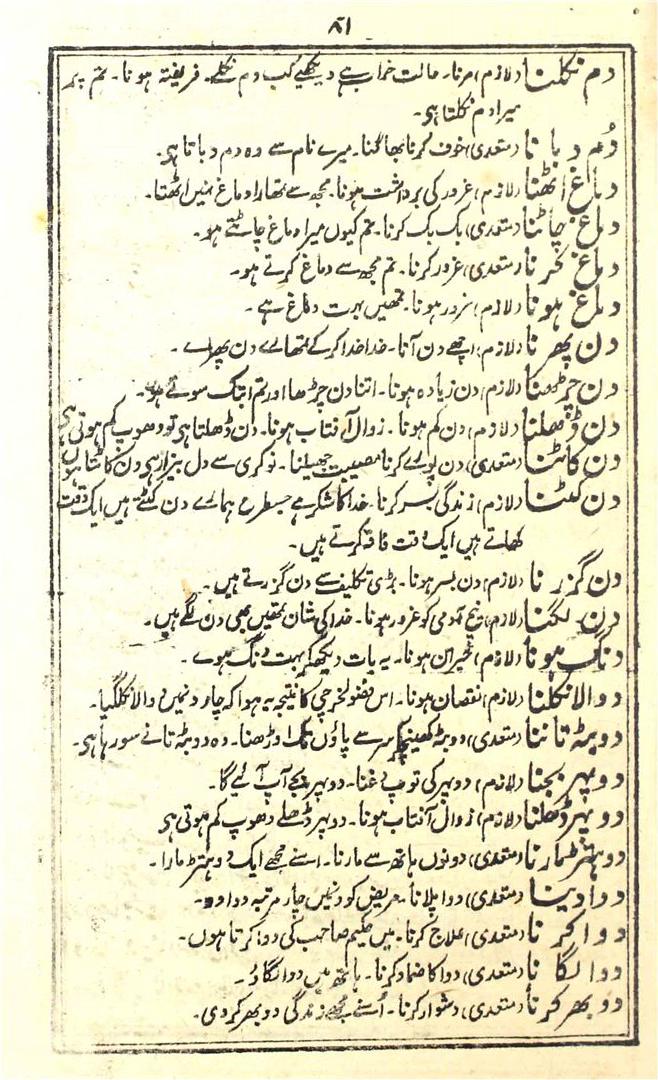 ۸۱
دم نکلنا (لازم) مرنا۔ حالت خراب ہے دیکھیے کب دم نکلے۔ فریفتہ ہونا۔ تم پر
میرا دم نکلتا ہی۔
دُم دبانا (متعدی) خوف کرنا بھاگنا۔ میرے نام سے وہ دم دباتا ہی۔
دماغ اٹھنا (لازم) غرور کی برداشت ہونا۔ مجھ سے تمھارا دماغ نہیں اٹھتا۔
دماغ چاٹنا (متعدی) بک بک کرنا۔ تم کیوں میرا دماغ چاٹتے ہو۔
دماغ کرنا (متعدی) غرور کرنا۔ تم مجھ سے دماغ کرتے ہو۔
دماغ ہونا (لازم) غرور ہونا۔ تمھیں بہت دماغ ہے۔
دن پھرنا (لازم) اچھے دن آنا۔ خدا خدا کر کے تمھارے دن پھرے۔
دن چڑھنا (لازم) دن زیادہ ہونا۔ اتنا دن چڑھا اور تم ابتک سوتے ہو۔
دن ڈھلنا (لازم) دن کم ہونا۔ زوال آفتاب ہونا۔ دن ڈھلتا ہی تو دھوپ کم ہوتی ہی
دن کاٹنا (متعدی) دن پورے کرنا مصیبت جھیلنا۔ نوکری سے دل بیزار ہی دن کاٹتا ہوں
دن کٹنا (لازم) زندگی بسر کرنا۔ خدا کا شکر ہے جسطرح ہمارے دن کٹتے ہیں ایک وقت
کھاتے ہیں ایک وقت فاقہ کرتے ہیں۔
دن گزرنا (لازم) دن بسر ہونا۔ بڑی تکلیف سے دن گزرتے ہیں۔
دن لگنا (لازم) نیچ آدمی کو غرور ہونا۔ خدا کی شان تمھیں بھی دن لگے ہیں۔
دنگ ہونا (لازم) حیران ہونا۔ یہ بات دیکھکر بہت دنگ ہوے۔
دوالا نکلنا (لازم) نقصان ہونا۔ اس فضولخرچی کا نتیجہ یہ ہوا کہ چار دنمیں دوالا نکلگیا۔
دوپٹہ تاننا (متعدی) دوپٹہ کھینچکر سر سے پاؤں تک اوڑھنا۔ وہ دوپٹہ تانے سو رہا ہی۔
دوپہر بجنا (لازم) دوپہر کی توپ دغنا۔ دوپہر بجے آپ آئیے گا۔
دوپہر ڈھلنا (لازم) زوال آفتاب ہونا۔ دوپہر ڈھلے دھوپ کم ہوتی ہی
دوہتڑ مارنا (متعدی) دونوں ہاتھ سے مارنا۔ اسنے مجھے ایک دوہتڑ مارا۔
دوا دینا (متعدی) دوا پلانا۔ مریض کو دنمیں چار مرتبہ دوا دو۔
دوا کرنا (متعدی) علاج کرنا۔ میں حکیم صاحب کی دوا کرتا ہوں۔
دوا لگانا (متعدی) دوا کا ضماد کرنا۔ ہاتھ میں دوا لگاؤ۔
دوبھر کرنا (متعدی) دشوار کرنا۔ اُسنے مجھے زندگی دوبھر کر دی۔